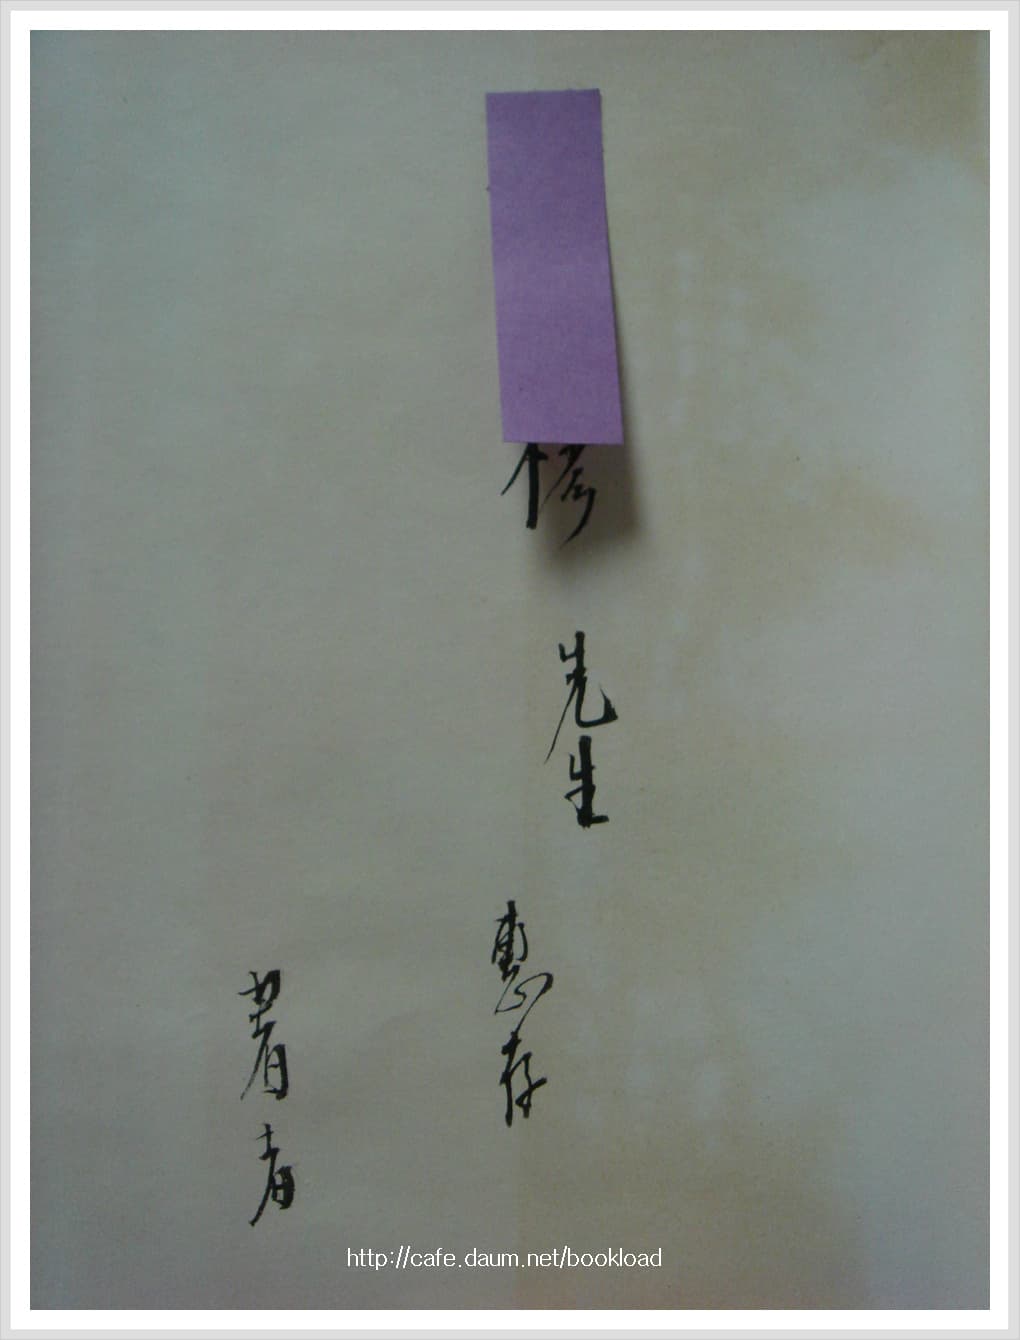 先生 惠存
著者
http://cafe.daum.net/bookload